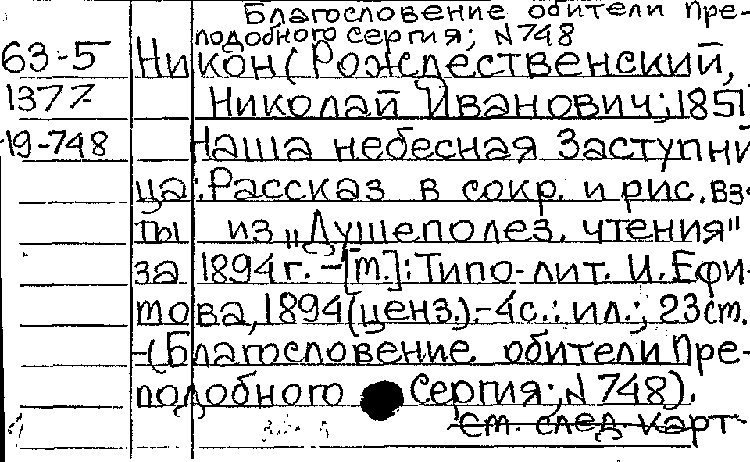 Благословение обители Пре-
подобного Сергия; N748
63-5 Никон (Рождественский,
1377 Николай Иванович; 1851
19-748 Наша небесная Заступни
ца: Рассказ в сокр. и рис. вз-
ты из „Душеполез. чтения"
за 1894 г. - [М.]: Типо-лит. И. Ефи-
мова, 1894 (ценз.). - 4с.: ил.; 23 см.
- (Благословение обители Пре-
подобного Сергия; N 748).
см. след. карт